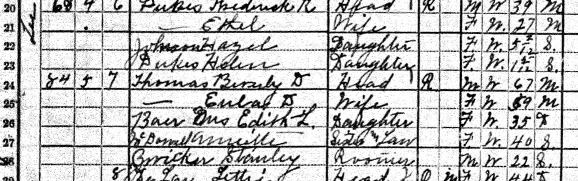 20 68 4 6 Dukes Frederick R Head R M W 39 M
21 — Ethel Wife F W. 27 M
22 Johnson Hazel Daughter F W. S.
23 Dukes Helen Daughter F W. S.
24 84 5 7 Thomas D Head R M W 67 M
25 — D. Wife F W 59 M
26 Baer Mrs Edith L. Daughter F W 35 D
27 Annette Sister in Law F W. 40 S.
28 Bricker Stanley Roomer M W 22 S.
8 Head O M F W 44 D
Lee